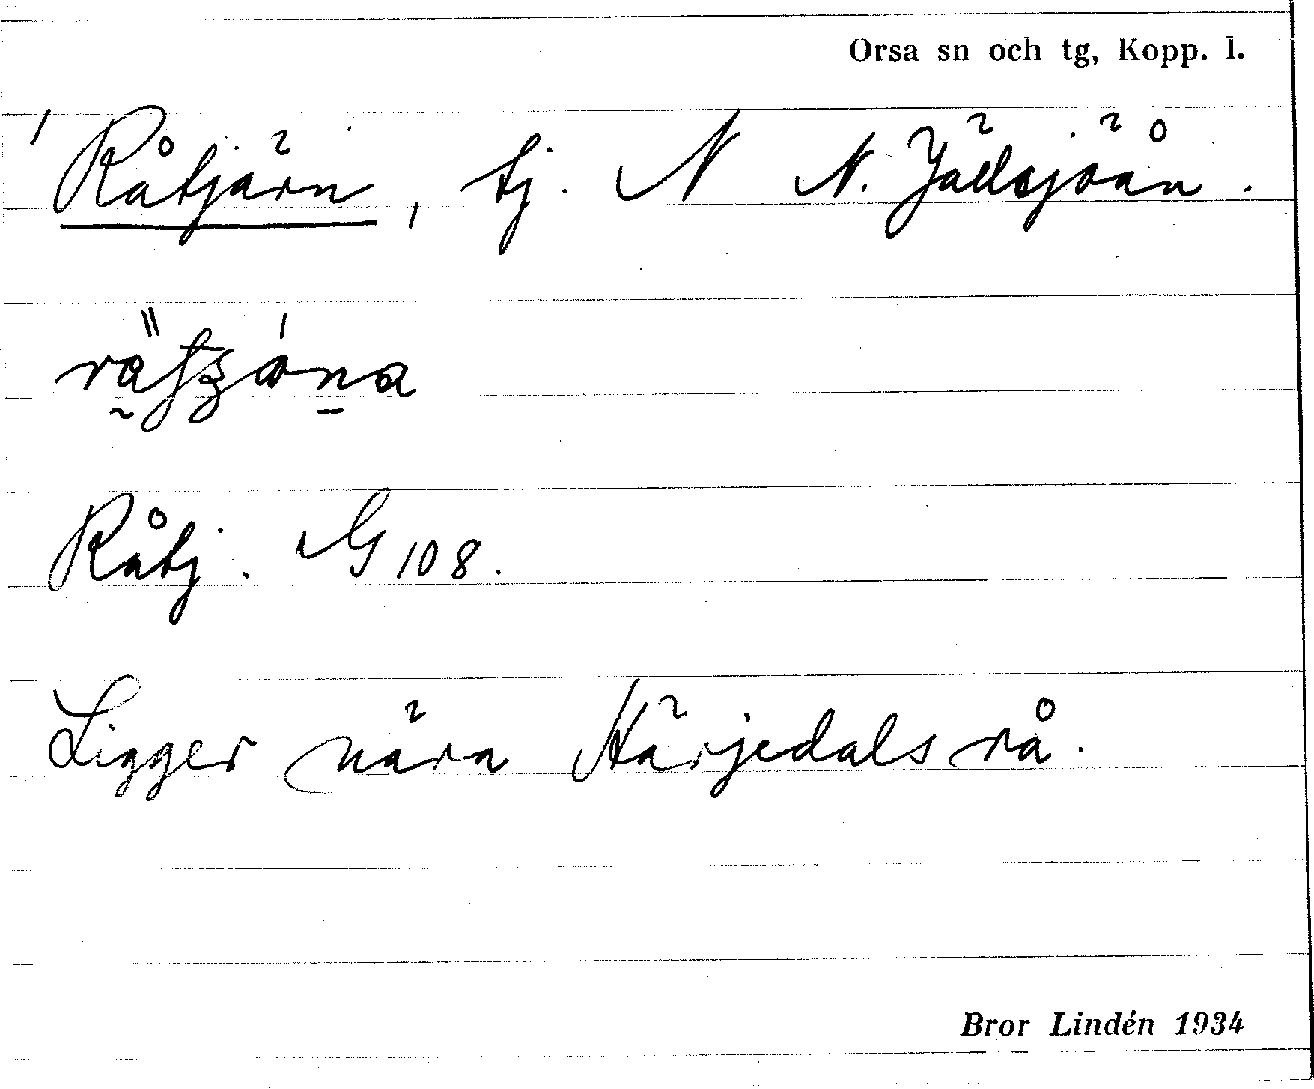 Orsa sn och tg, Kopp. l.
1 Råtjärn, tj. N N. Jädsjöån.
Råtj. G 108.
Ligger nära Härjedals rå.
Bror Lindén 1934